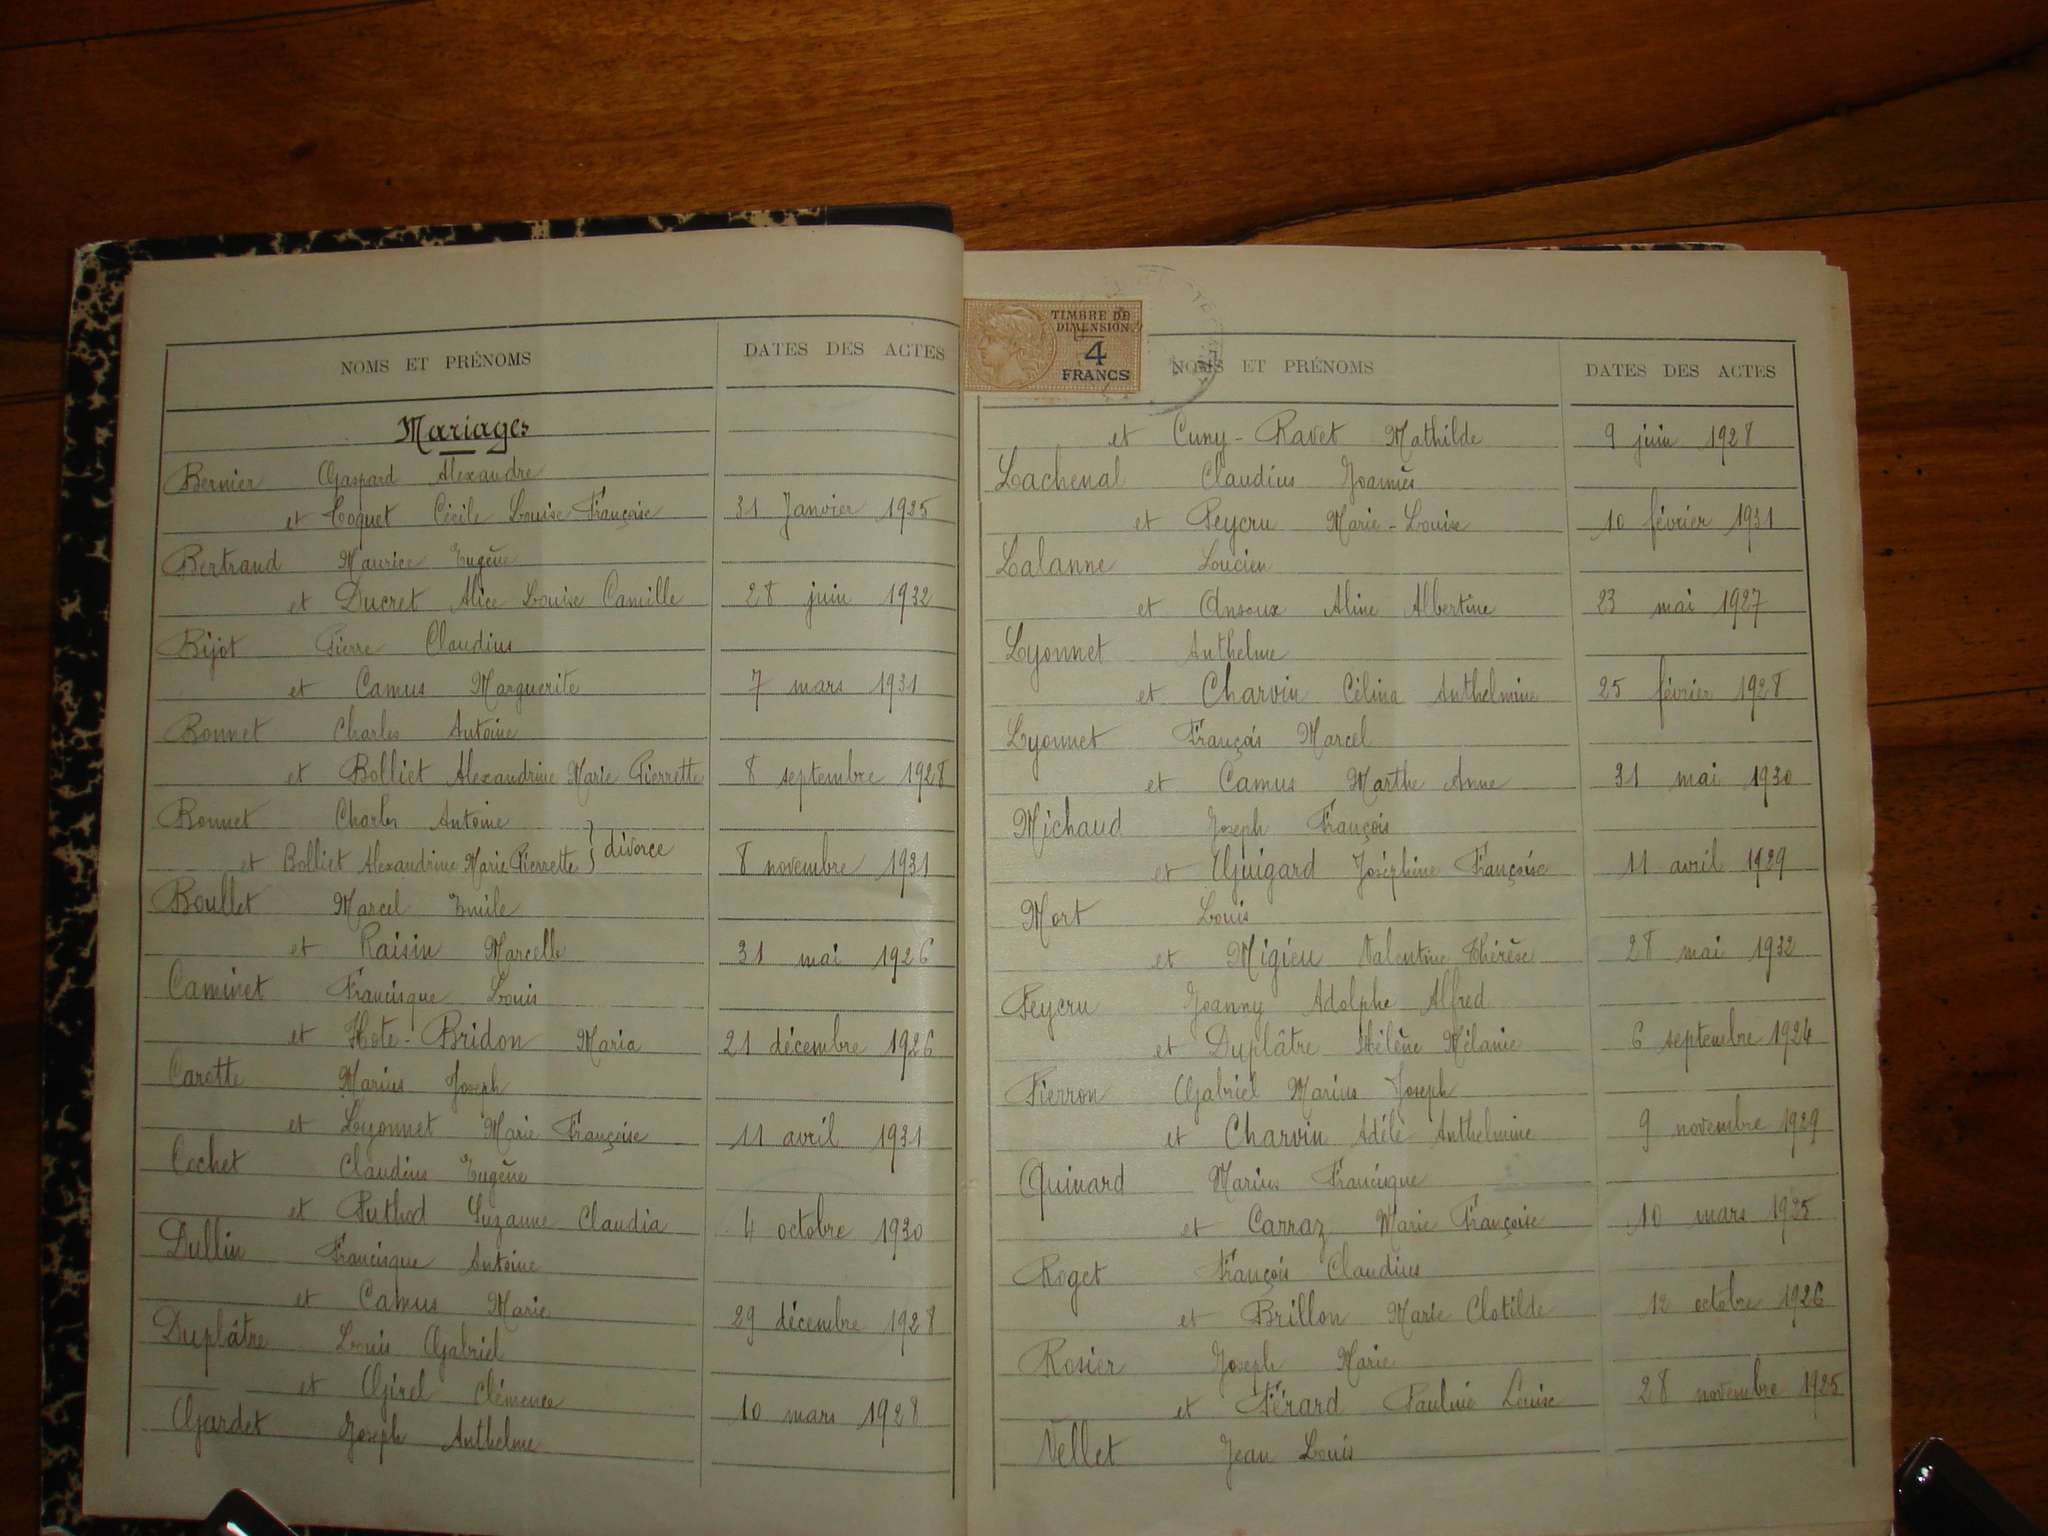 NOMS ET PRÉNOMS DATES DES ACTES
Mariages
Bernier Gaspard Alexandre
et Coquet Cécile Louise Françoise 31 Janvier 1925
Bertrand Maurice Eugène
et Ducret Alice Louise Camille 28 juin 1932
Bijot Pierre Claudius
et Camus Marguerite 7 mars 1931
Bonnet Charles Antoine
et Bolliet Alexandrine Marie Pierrette 8 septembre 1928
Bonnet Charles Antoine
et Bolliet Alexandrine Marie Pierrette } divorce 8 novembre 1931
Boullet Marcel Emile
et Raisin Marcelle 31 mai 1926
Caminet Francisque Louis
et Hote-Bridon Maria 21 décembre 1926
Carotte Marius Joseph
et Lyonnet Marie Françoise 11 avril 1931
Cochet Claudius Eugène
et Puthod Suzanne Claudia 4 octobre 1930
Dullin Francisque Antoine
et Camus Marie 29 décembre 1928
Duplâtre Louis Gabriel
et Girel Clémence 10 mars 1928
Gardet Joseph Anthelme
TIMBRE DE
DIMENSION
4
FRANCS
NOMS ET PRÉNOMS DATES DES ACTES
et Cuny-Ravet Mathilde 9 juin 1928
Lachenal Claudius Joannès
et Peycru Marie-Louise 10 février 1931
Lalanne Lucien
et Ansoux Aline Albertine 23 mai 1927
Lyonnet Anthelme
et Charvin Célina Anthelmine 25 février 1928
Lyonnet François Marcel
et Camus Marthe Anne 31 mai 1930
Michaud Joseph François
et Guigard Joséphine Françoise 11 avril 1929
Mort Louis
et Migieu Valentine Thérèse 28 mai 1932
Peycru Joanny Adolphe Alfred
et Duplâtre Hélène Mélanie 6 septembre 1924
Pierron Gabriel Marius Joseph
et Charvin Adèle Anthelmine 9 novembre 1929
Quinard Marius Francisque
et Carraz Marie Françoise 10 mars 1925
Roget François Claudius
et Brillon Marie Clotilde 12 octobre 1926
Rosier Joseph Marie
et Férard Pauline Louise 28 novembre 1925
Vellet Jean Louis